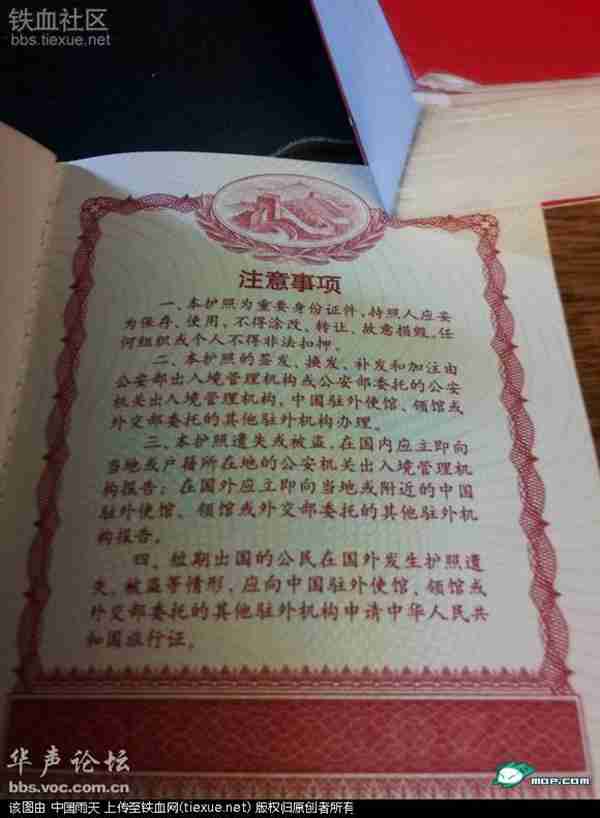 铁血社区
bbs.tiexue.net
注意事项
一、本护照为重要身份证件，持照人应妥
为保存、使用，不得涂改、转让、故意损毁。任
何组织或个人不得非法扣押。
二、本护照的签发、换发、补发和加注由
公安部出入境管理机构或公安部委托的公安
机关出入境管理机构，中国驻外使馆、领馆或
外交部委托的其他驻外机构办理。
三、本护照遗失或被盗，在国内应立即向
当地或户籍所在地的公安机关出入境管理机
构报告；在国外应立即向当地或附近的中国
驻外使馆、领馆或外交部委托的其他驻外机
构报告。
四、短期出国的公民在国外发生护照遗
失、被盗等情形，应向中国驻外使馆、领馆或
外交部委托的其他驻外机构申请中华人民共
和国旅行证。
华声论坛
bbs.voc.com.cn
MOP.com
该图由 中国雨天 上传至铁血网(tiexue.net) 版权归原创者所有